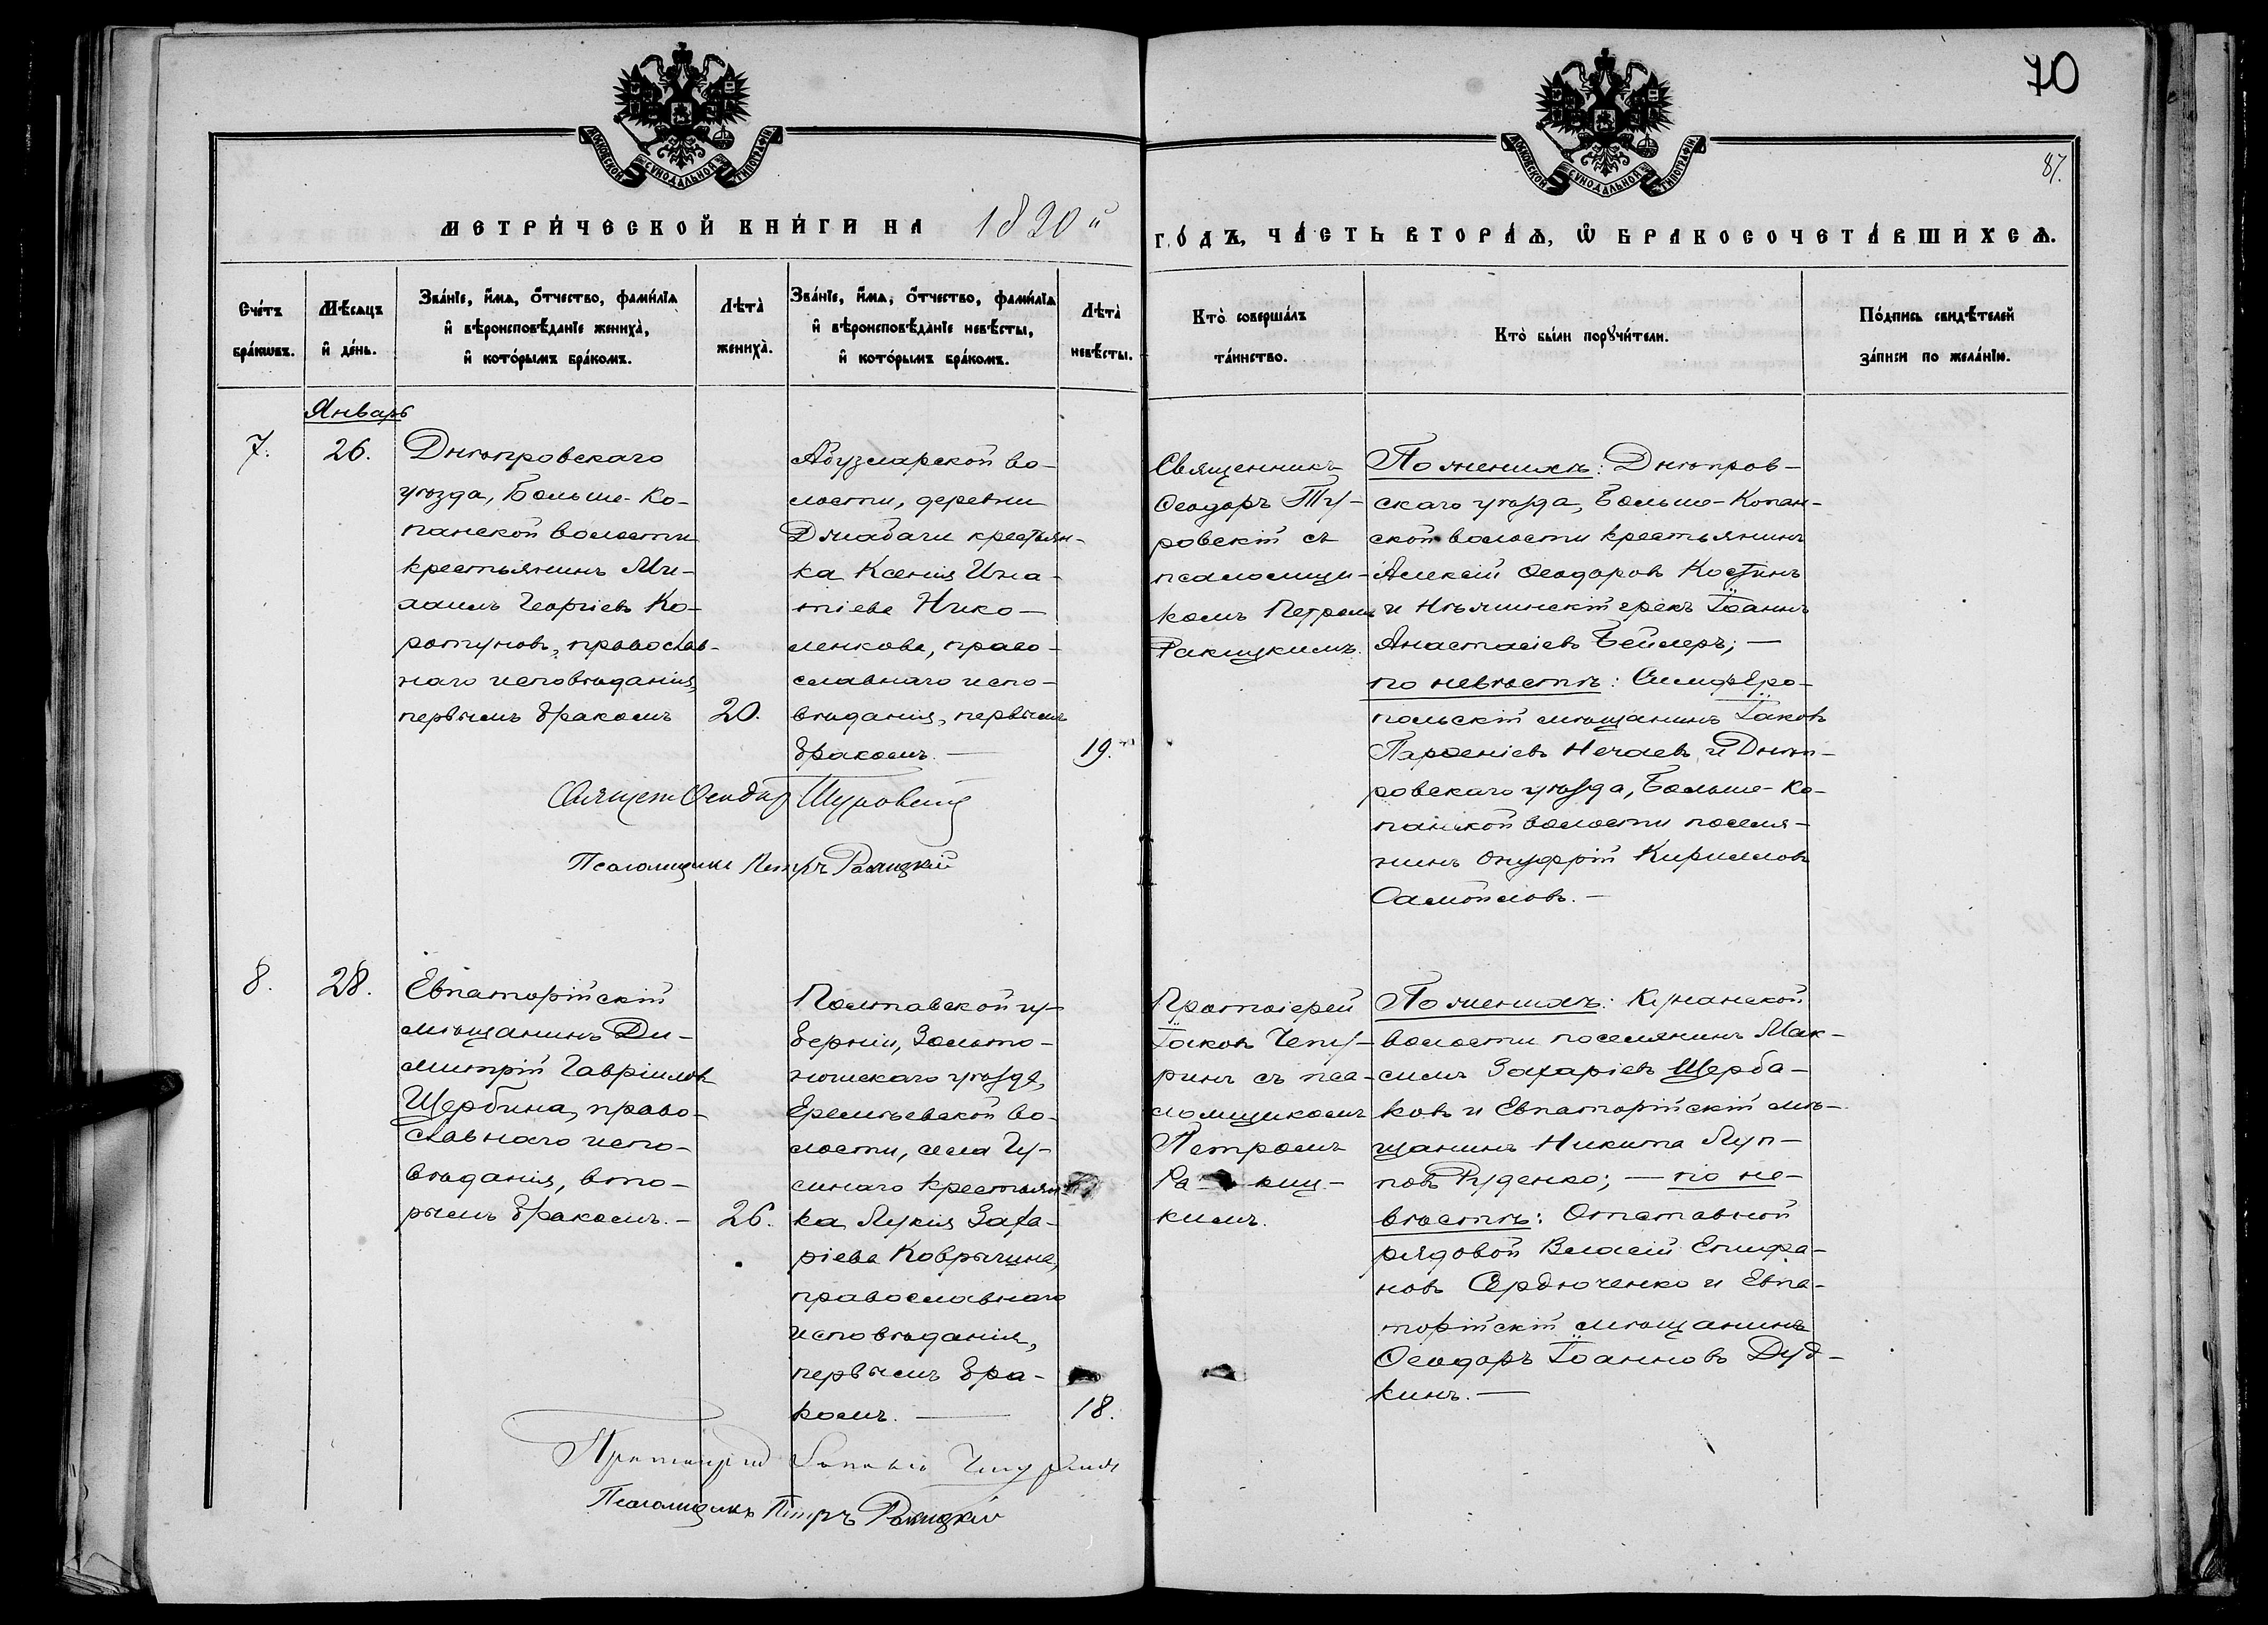 70
87.
МОСКОВСКОЙ СѴНОДАЛЬНОЙ ТИПОГРАФІИ
МОСКОВСКОЙ СѴНОДАЛЬНОЙ ТИПОГРАФІИ
МЕТРИ́ЧЕСКОЙ КНИ́ГИ НА 1890й
ГО́ДЪ, ЧА́СТЬ ВТОРА́Ѧ, Ѡ҆ БРАКОСОЧЕТА́ВШИХСѦ.
Сче́тъ
бра́кѡвъ.
Мѣ́сѧцъ
и҆ де́нь.
Зва́нїе, и҆́мѧ, ѻ҆́тчество, фами́лїѧ
и҆ вѣроисповѣ́данїе жениха̀,
и҆ кото́рымъ бра́комъ.
Лѣта̀
жениха̀.
Зва́нїе, и҆́мѧ, ѻ҆́тчество, фами́лїѧ
и҆ вѣроисповѣ́данїе невѣ́сты,
и҆ кото́рымъ бра́комъ.
Лѣта̀
невѣ́сты.
Кто̀ соверша́лъ
та́инство.
Кто̀ бы́ли порꙋчи́тели.
По́дпись свидѣ́телей
за́писи по жела́нїю.
Январь
7.
26.
Днѣпровскаго
уѣзда, Больше-Ко-
панской волости
крестьянинъ Ми-
хаилъ Георгіевъ Ко-
ротуновъ, православ-
наго исповѣданія,
первымъ бракомъ
20.
Абузларской во-
лости, деревни
Джабачи крестьян-
ка Ксенія Игна-
тіева Нико-
ленкова, право-
славнаго испо-
вѣданія, первымъ
бракомъ. —
19.
Священникъ
Ѳеодоръ Ту-
ровскій съ
псаломщи-
комъ Петромъ
Ракицкимъ.
По женихѣ: Днѣпров-
скаго уѣзда, Больше-Копан-
ской волости крестьянинъ
Алексій Ѳеодоровъ Костинъ
и Нѣжинскій грекъ Іоаннъ
Анастасіевъ Бейлеръ; —
по невѣстѣ: Симферо-
польскій мѣщанинъ Іаковъ
Парѳеніевъ Нечаевъ и Днѣп-
ровскаго уѣзда, Больше-Ко-
панской волости поселя-
нинъ Онуфрій Кирилловъ
Самойловъ. —
Священ Ѳеодор Туровскій
Псаломщикъ Петръ Ракицкій
8.
28.
Евпаторійскій
мѣщанинъ Ди-
митрій Гавріиловъ
Щербина, право-
славнаго испо-
вѣданія, вто-
рымъ бракомъ. —
26.
Полтавской гу-
берніи, Золото-
ношскаго уѣзда,
Еремѣевской во-
лости, села Гу-
синаго крестьян-
ка Лукія Заха-
ріева Коврыгина,
православнаго
исповѣданія,
первымъ бра-
комъ. —
18.
Протоіерей
Іаковъ Чепу-
ринъ съ пса-
ломщикомъ
Петромъ
Ра киц-
кимъ.
По женихѣ: Кунанской
волости поселянинъ Мак-
симъ Захаріевъ Щерба-
ковъ и Евпаторійскій мѣ-
щанинъ Никита Луп-
повъ Руденко; — по не-
вѣстѣ: Отставной
рядовой Власій Епифа-
новъ Сердюченко и Евпа-
торійскій мѣщанинъ
Ѳеодоръ Іоанновъ Дуд-
кинъ. —
Протоіерей Іаковъ Чепуринъ
Псаломщикъ Петръ Ракицкій